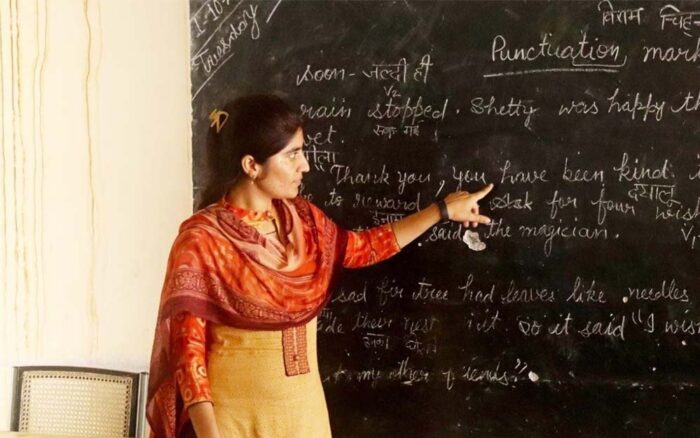 Tuesday
विराम चिह्न
Punctuation mark
soon - जल्दी ही
V2
rain stopped. Shetty was happy th
रुक गई
wet.
गीला
"Thank you, you have been kind.
दयालु
to reward ask for four wis
इनाम
V1
said the magician.
sad fir tree had leaves like needles
their nest in it. So it said "I wis
my other friends."